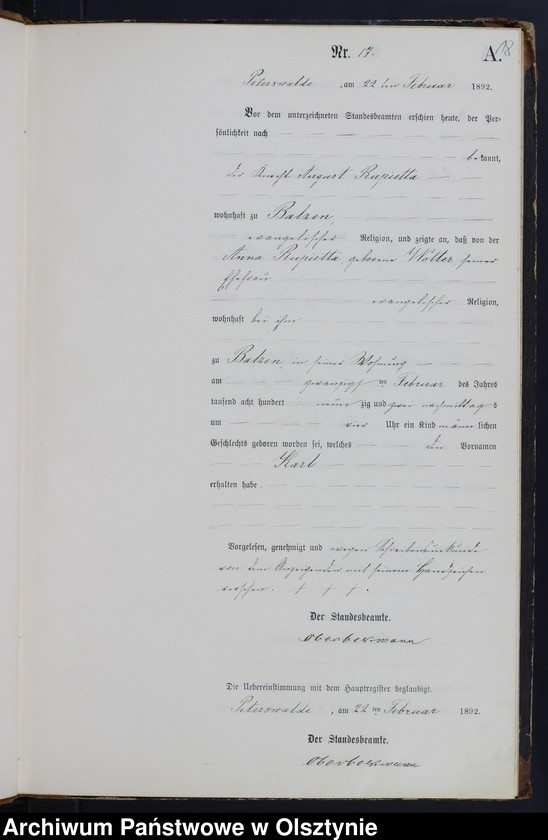 Nr. 17.
A. 18
Peterswalde, am 22 ten Februar 1892.
Vor dem unterzeichneten Standesbeamten erschien heute, der Per-
sönlichkeit nach
bekannt,
der Knecht August Rupietta
wohnhaft zu Balzen,
evangelischer Religion, und zeigte an, daß von der
Anna Rupietta, geborene Wölter, seiner
Ehefrau
evangelischer Religion,
wohnhaft bei ihm
zu Balzen, in seiner Wohnung
am zwanzigsten Februar des Jahres
tausend acht hundert neunzig und zwei nachmittags
um vier Uhr ein Kind männlichen
Geschlechts geboren worden sei, welches den Vornamen
Karl
erhalten habe.
Vorgelesen, genehmigt und wegen Schreibensunkunde
von dem Anzeigenden mit seinem Handzeichen
versehen. + + +.
Der Standesbeamte.
Oberbossmann
Die Uebereinstimmung mit dem Hauptregister beglaubigt.
Peterswalde, am 22 ten Februar 1892.
Der Standesbeamte.
Archiwum Państwowe w Olsztynie